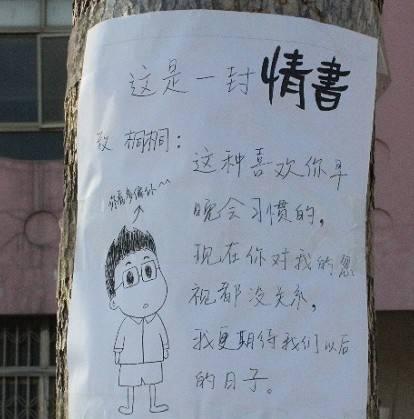 这是一封情書
致 桐桐：
这种喜欢你早
晚会习惯的，
现在你对我的忽
视都没关系，
我更期待我们以后
的日子。